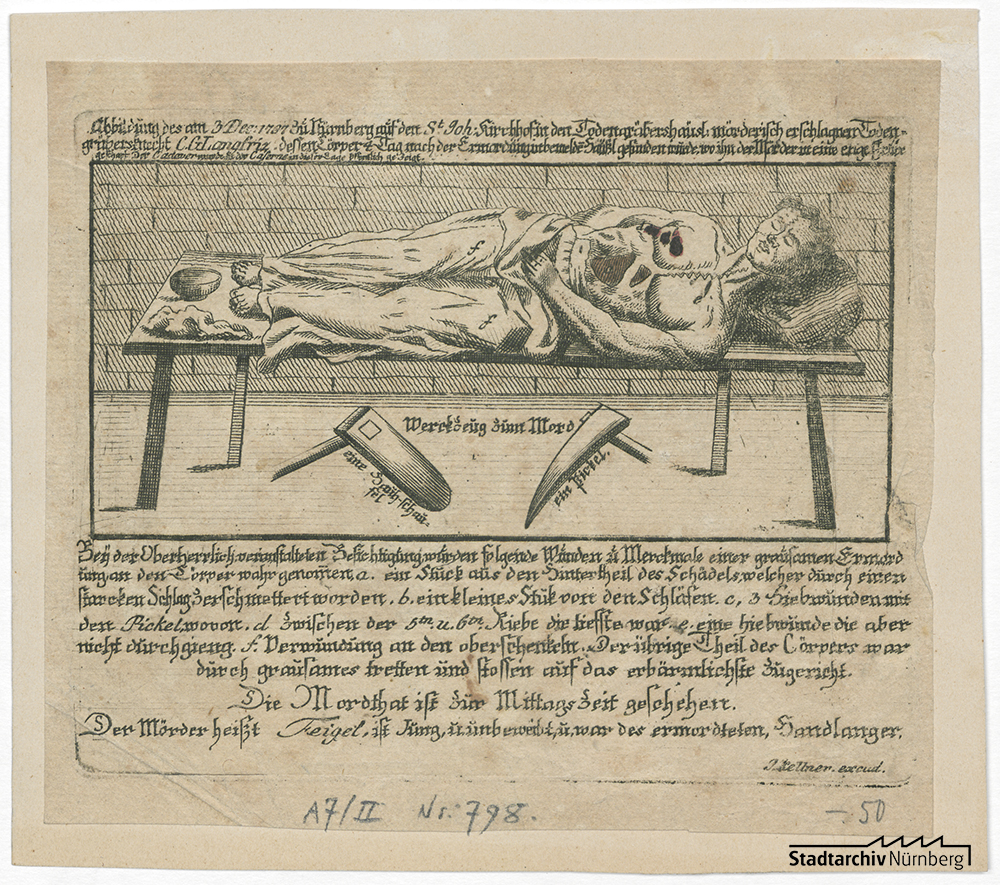 Abbildung des am 3 Dec: 1787 zu Nürnberg auf den St. Joh: Kirchhof in den Todengräbershäusl: mörderisch erschlagnen Toden-
gräbersknecht dessen Cörper Tag nach der Ermordung in bemelde Häusl gefunden wurde, wo ihn der Mörder in eine enge
geschart. Der Cadaver wurde in der Caserne öffentlich gezeigt.
f
g
Werckzeug zum Mord
eine Hauh-schau-
fel
ein Pickel.
Bey der Oberherrlich veranstalteten Besichtigung, wurden folgende Wunden u Merckmale einer grausamen Ermord
ung an den Cörper wahr genommen, a. ein Stück aus den Hintertheil des Schädels, welcher durch einen
starcken Schlag zerschmettert worden. b. ein kleines Stük von den Schläfen. c, 3 Hiebwunden mit
den Pickel, wovon. d zwischen der 5ten u. 6ten Riebe die tieffste war. e. eine hiebwunde die aber
nicht durchgieng. f. Verwundung an den oberschenkeln. Der übrige Theil des Cörpers war
durch grausames tretten und stossen auf das erbärmlichste zugericht.
Die Mordthat ist zur Mittags Zeit geschehen.
Der Mörder heißt Feigel, ist Jung, u. unbeweibt, u. war des ermordteten, Handlanger.
J. Zellner. excud.
A7/II Nr. 798.
- 50
Stadtarchiv Nürnberg